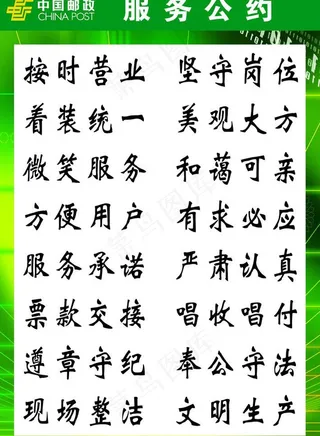 中国邮政 服务公约
CHINA POST
按时营业 坚守岗位
着装统一 美观大方
微笑服务 和蔼可亲
方便用户 有求必应
服务承诺 严肃认真
票款交接 唱收唱付
遵章守纪 奉公守法
现场整洁 文明生产